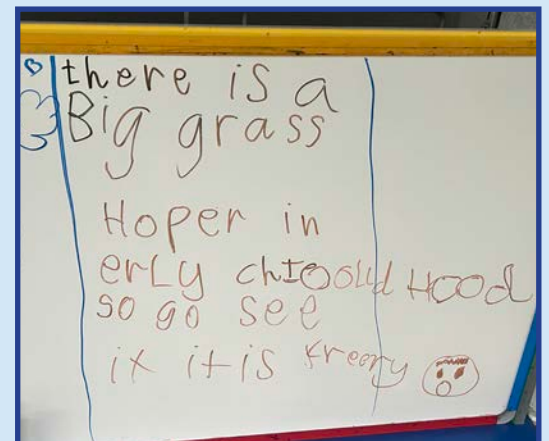 B
there is a
Big grass
Hoper in
erly chIoold Hood
so go see
it it is freery